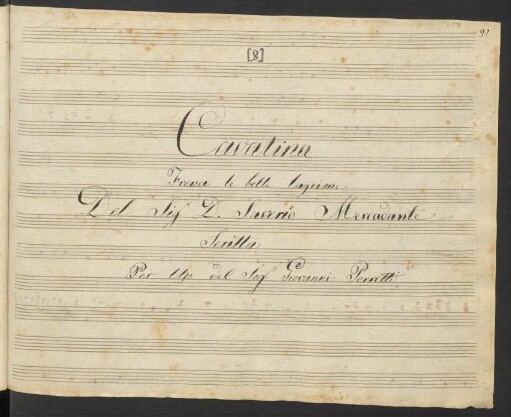 92
[8]
Cavatina
Frena le belle lagrime
Del Sig. D. Saverio Mercadante
Scritta
Per Uso del Sig. Giovanni Perretti